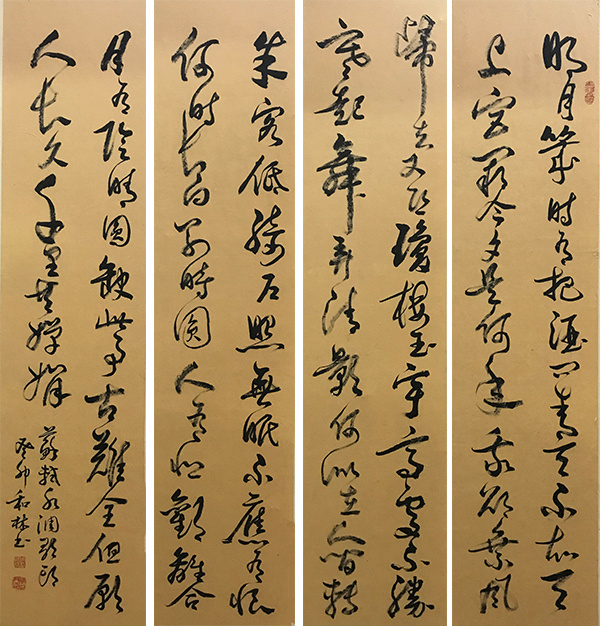 明月幾时有把酒问青天不知天
上宫阙今夕是何年我欲乘风
歸去又恐瓊楼玉宇高处不勝
寒起舞弄清影何似在人间转
朱阁低绮户照無眠不應有恨
何时长向别時圆人有悲歡離合
月有陰晴圆缺此事古難全但願
人长久千里共嬋娟
蘇軾水调歌头
癸卯和林书